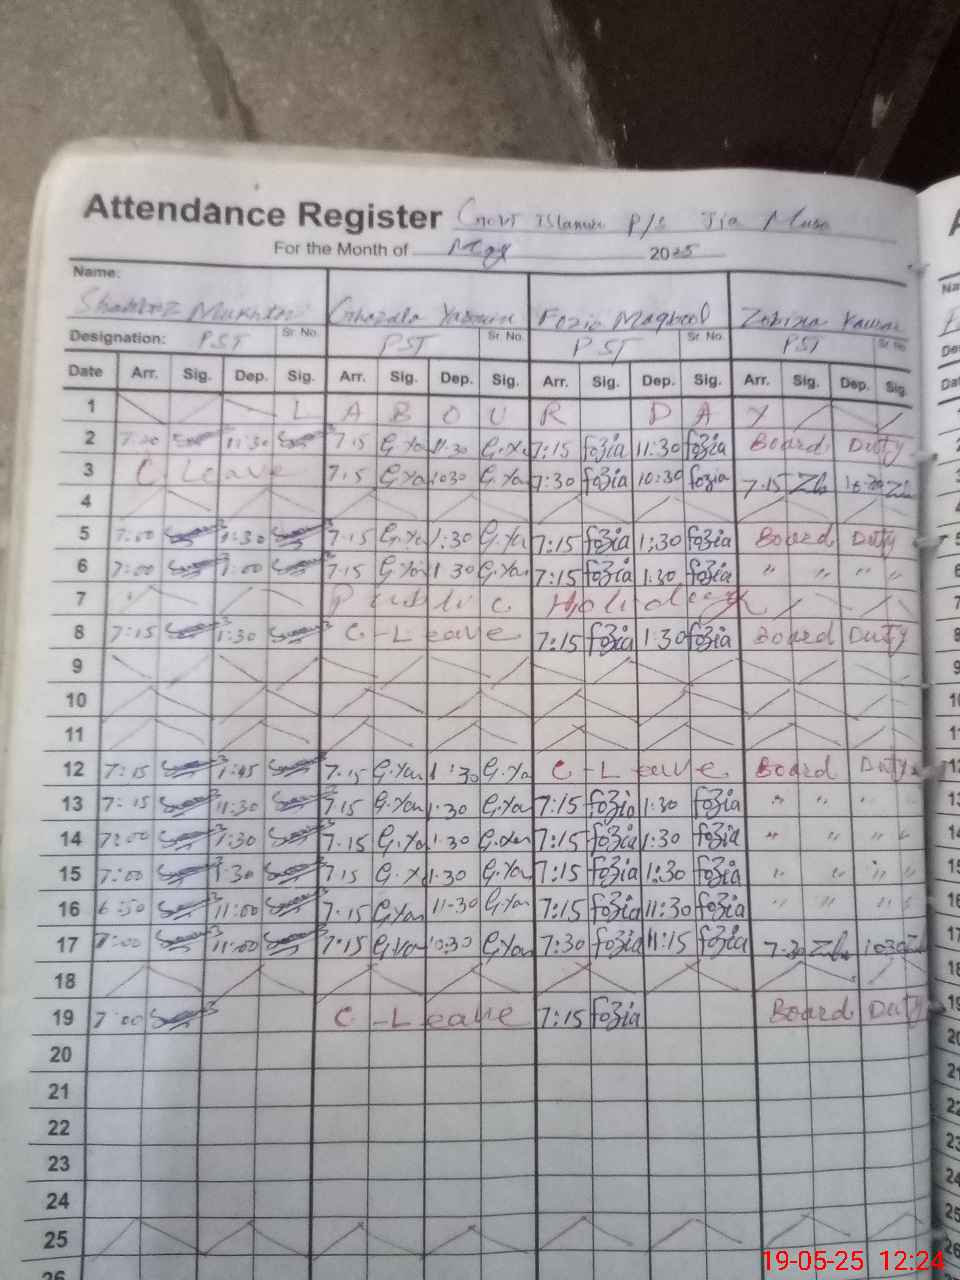 Attendance Register Govt Islamia P/S Jia Musa
For the Month of May 2025
Name:
Mukhtar Ghazala Yasmin Fozia Maqbool Zobixa
Designation: PST Sr. No. PST Sr. No. PST Sr. No. PST Sr. No.
Date Arr. Sig. Dep. Sig. Arr. Sig. Dep. Sig. Arr. Sig. Dep. Sig. Arr. Sig. Dep. Sig.
1 L A B O U R D A Y
2 11:30 7.15 G.Ya 11.30 G.Ya 7:15 fozia 11:30 fozia Board Duty
3 C Leave 7.15 G.Ya 10:30 G.Ya 7:30 fozia 10:30 fozia 7.15 Zb
4
5 7:00 1:30 7.15 G.Ya 1:30 G.Ya 7:15 fozia 1:30 fozia Board Duty
6 7:00 7.15 G.Yan 1 30 G.Yan 7:15 fozia 1.30 fozia " " " "
7 Public Holiday
8 7:15 1:30 C-Leave 7:15 fozia 1:30 fozia Board Duty
9
10
11
12 7:15 1:45 7.15 G.Yan 1:30 G.Ya C-Leave Board Duty
13 7:15 11:30 7.15 G.Yan 1.30 G.Yan 7:15 fozia 1:30 fozia " "
14 7:00 1:30 7.15 G.Ya 1.30 G.Yan 7:15 fozia 1:30 fozia " " " "
15 7:00 1:30 7.15 G.Y 1.30 G.Yan 7:15 fozia 1:30 fozia " " " "
16 6:50 11:00 7.15 G.Yan 11-30 G.Yan 7:15 fozia 11:30 fozia " " " "
17 7:00 11:00 7:15 G.Yan 10:30 G.Yan 7:30 fozia 11:15 fozia 7.30 Zb 10:30
18
19 7:00 C-Leave 7:15 fozia Board Duty
20
21
22
23
24
25
26
19-05-25 12:24